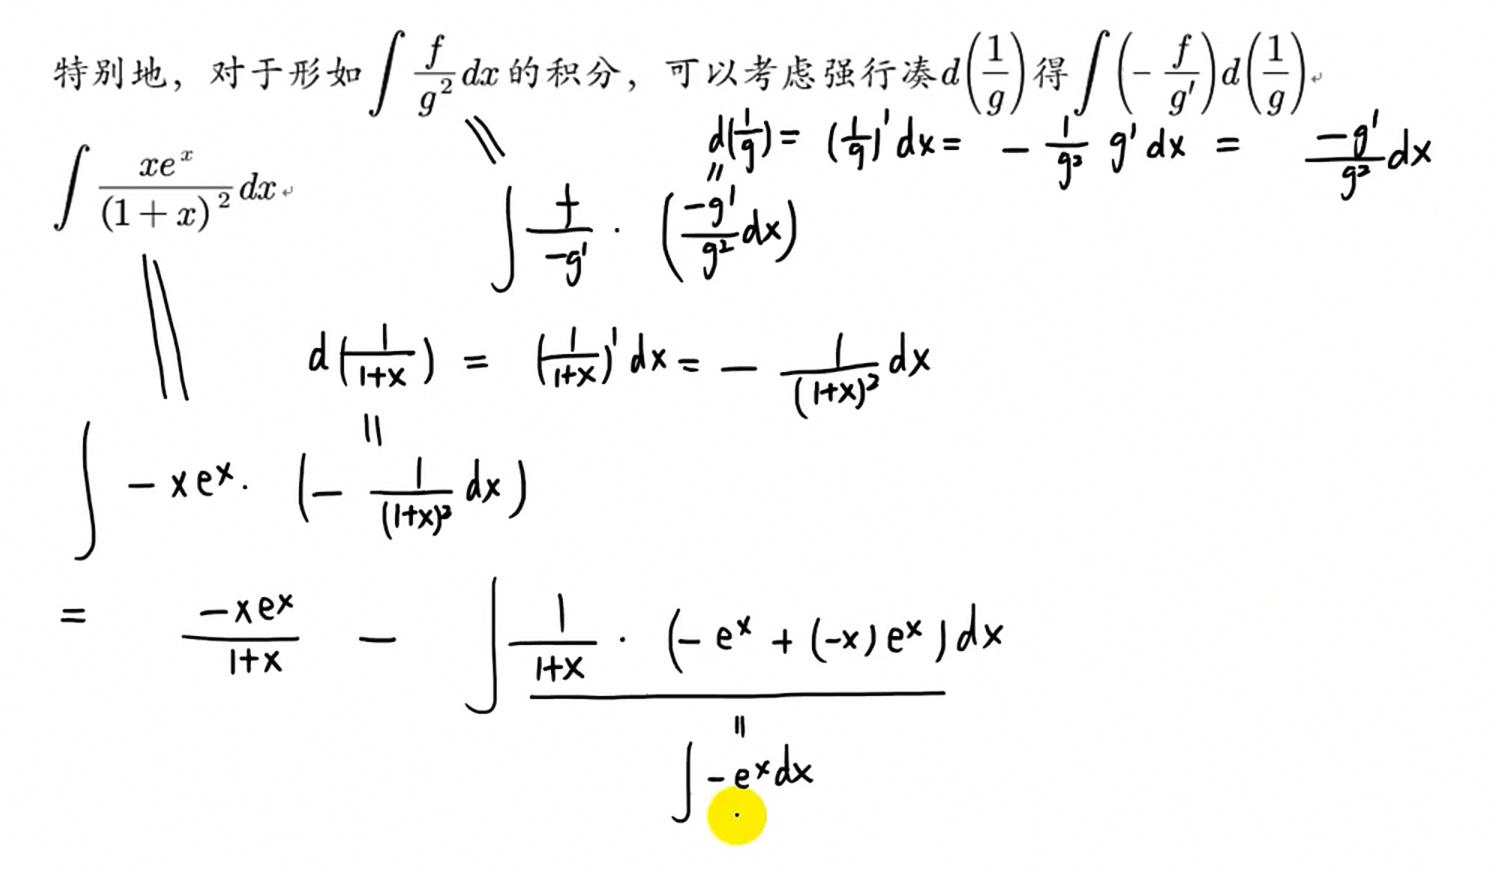 特别地，对于形如∫ f/g² dx 的积分，可以考虑强行凑d(1/g)得∫(-f/g')d(1/g)
d(1/g) = (1/g)' dx = - 1/g² g' dx = -g'/g² dx
∫ xeˣ/(1+x)² dx
= ∫ f/-g' · (-g'/g² dx)
d(1/1+x) = (1/1+x)' dx = - 1/(1+x)² dx
= ∫ -xeˣ · (- 1/(1+x)² dx)
= -xeˣ/1+x - ∫ 1/1+x · (-eˣ + (-x)eˣ) dx
=
∫ -eˣ dx